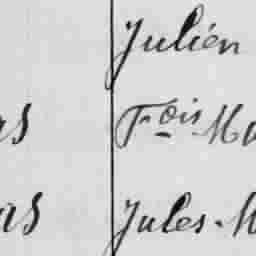 Julién
as Frois Ma
as Jules. M